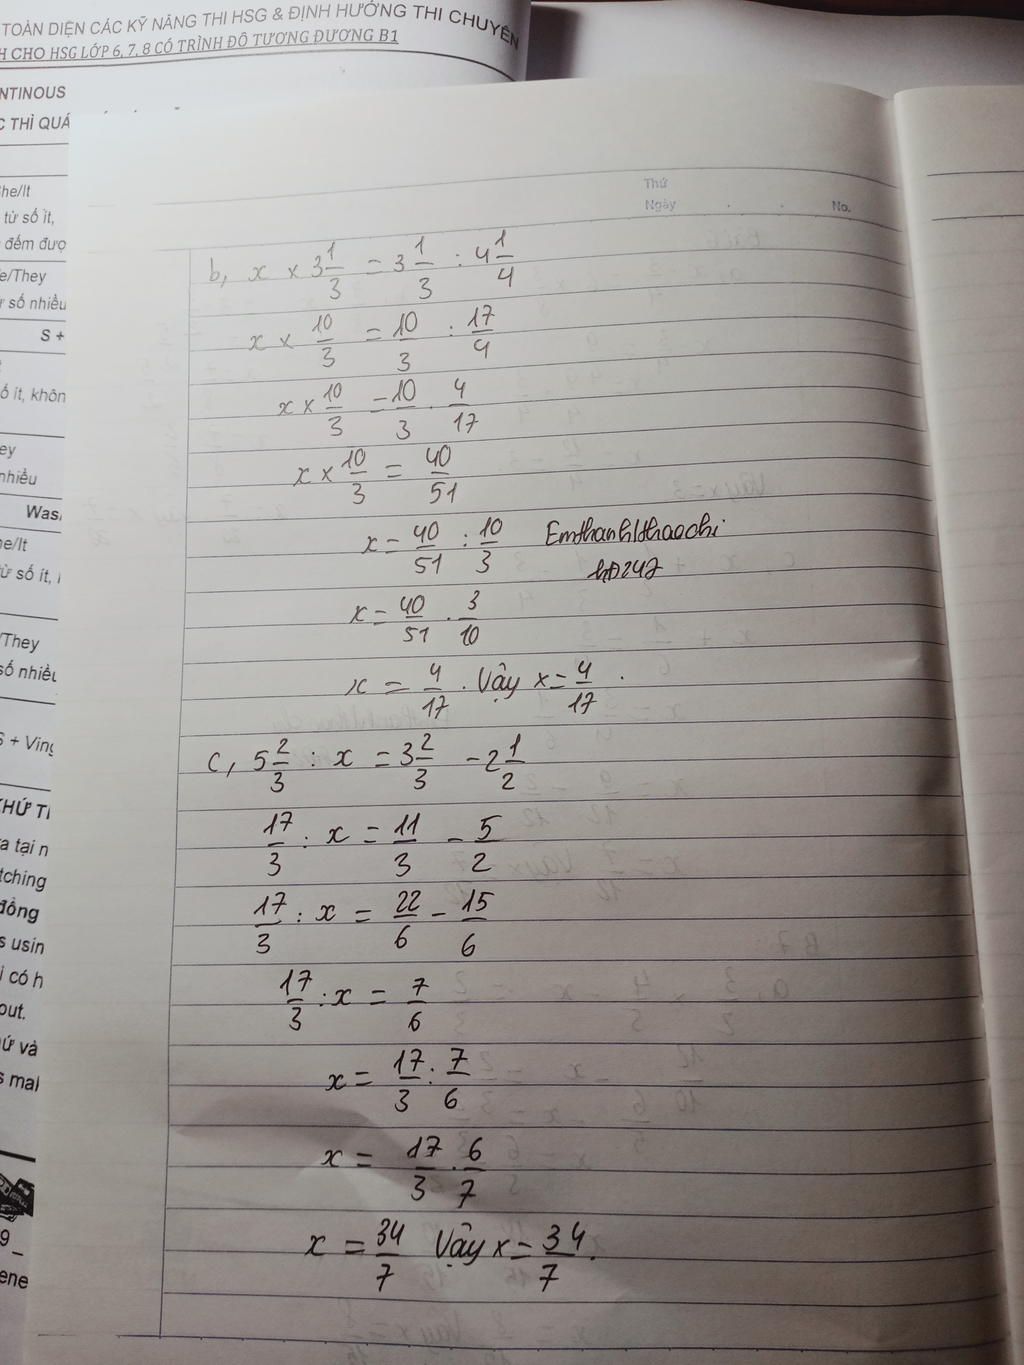 TOÀN DIỆN CÁC KỸ NĂNG THI HSG & ĐỊNH HƯỚNG THI CHUYÊN
H CHO HSG LỚP 6, 7, 8 CÓ TRÌNH ĐỘ TƯƠNG ĐƯƠNG B1
NTINOUS
C THÌ QUÁ
he/It
từ số ít,
đếm đượ
e/They
số nhiều
S +
ố ít, khôn
ey
nhiều
Was
he/It
từ số ít,
/They
số nhiều
S + Ving
KHỨ TI
a tại n
tching
đồng
s usin
i có h
out.
ứ và
s mal
9 _
ene
Thứ
Ngày . . No.
b, x × 3 1/3 = 3 1/3 : 4 1/4
x × 10/3 = 10/3 : 17/4
x × 10/3 = 10/3 . 4/17
x × 10/3 = 40/51
x = 40/51 : 10/3 Emthanhlthaochi
hD247
x = 40/51 . 3/10
x = 4/17 . Vậy x = 4/17 .
c, 5 2/3 : x = 3 2/3 - 2 1/2
17/3 : x = 11/3 - 5/2
17/3 : x = 22/6 - 15/6
17/3 : x = 7/6
x = 17/3 : 7/6
x = 17/3 . 6/7
x = 34/7 Vậy x = 34/7 .